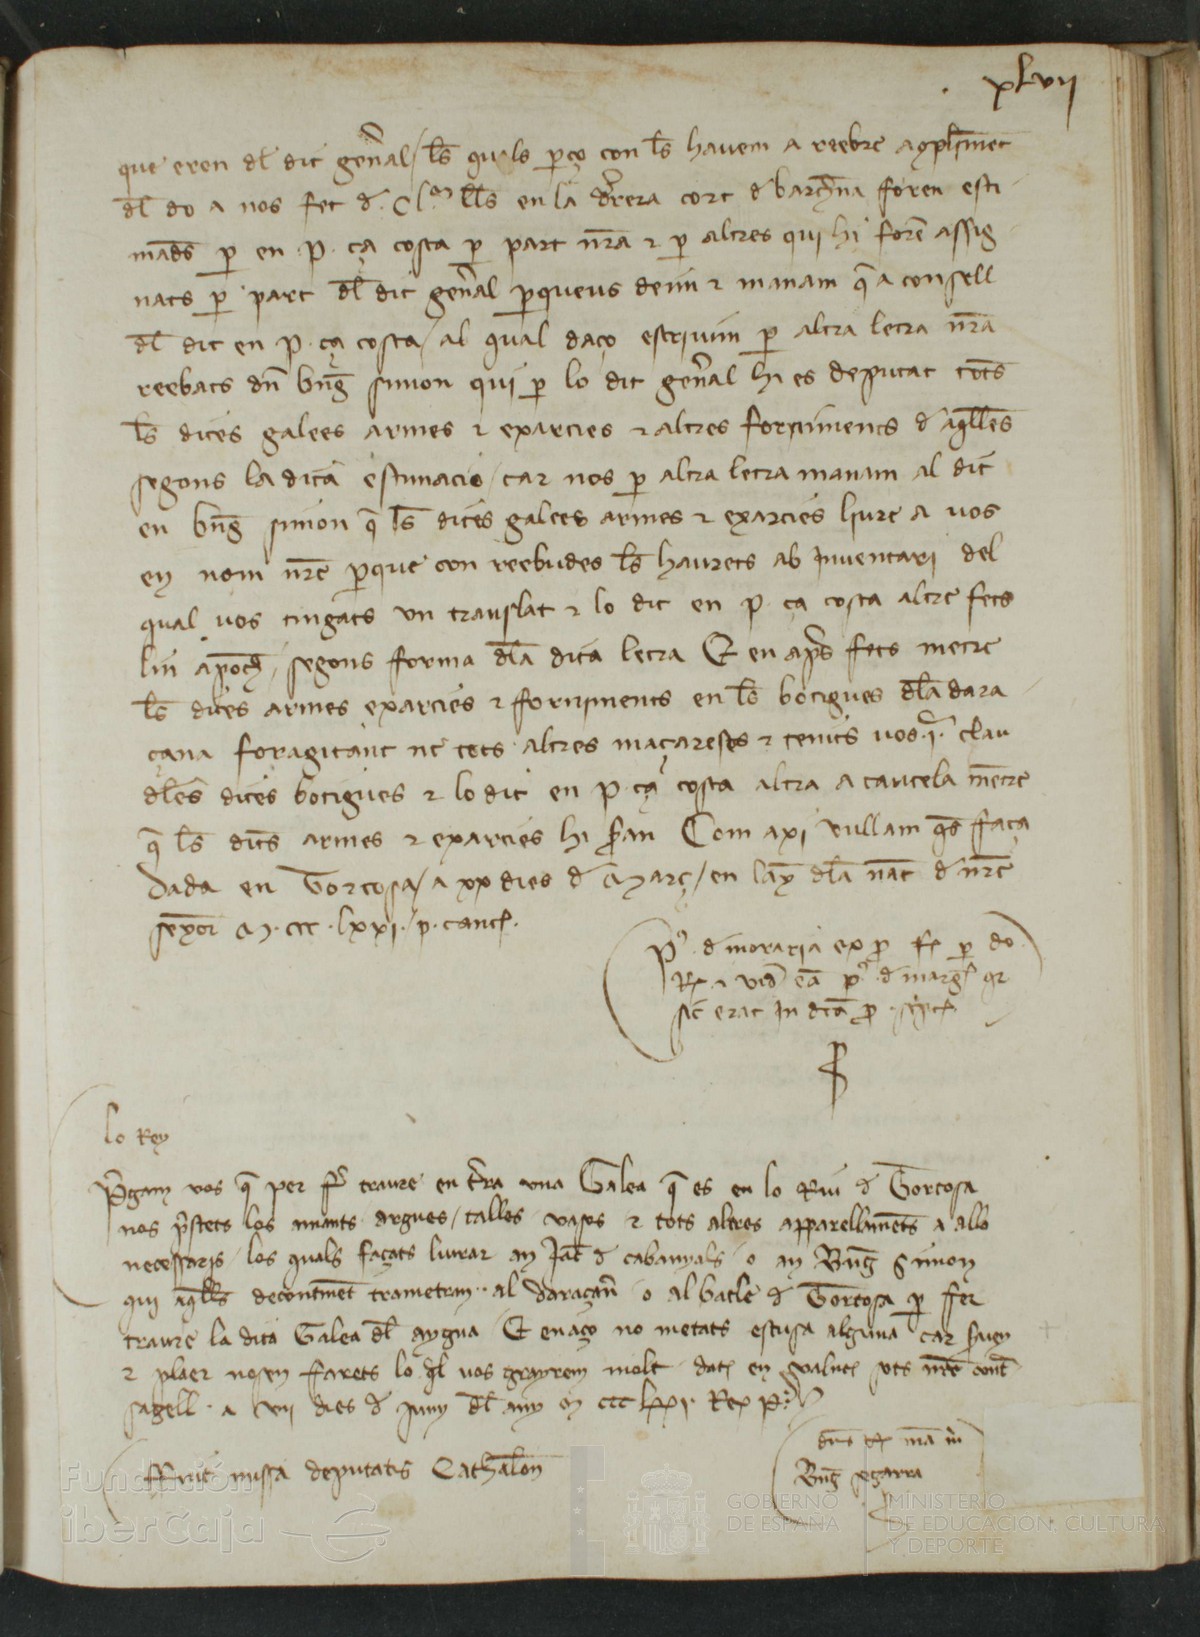 xlvii
que eren dl dit gen̄al / ls̄ quals p̱ço con ls̄ havem a reebre a
dl do a nos fet d̄ en la dr̄rera cort d̄ barch̄na foren esti
mad̄s p̱ en p. ça costa p̱ part nr̄a ⁊ p̱ altres qui hi foren̄ assig
nats p̱ part dl dit gen̄al p̱queus deim ⁊ manam q̄ a consell
dl dit en p. ça costa / al qual daço escrivim p̱ altra letra nr̄a
reebats dn̄ bn̄g simon qui p̱ lo dit gen̄al hi es deputat tots
ls̄ dites galees armes ⁊ exarcies ⁊ altres forniments d̄ aq̄lles
segons la dita estimacio / car nos p̱ altra letra manam al dit
en bn̄g simon q̄ ls̄ dites galees armes ⁊ exarcies liure a vos
en nom nr̄e p̱que con reebudes ls̄ haurets ab inventari del
qual vos tingats un translat ⁊ lo dit en p. ça costa altre fets
lin apoch̄ / segons forma dl̄a dita letra E en apr̄s fets metre
ls̄ dites armes exarcies ⁊ forniments en ls̄ botigues dl̄a dara
çana foragitant ne tots altres maçarefes ⁊ tenits vos .i. clau
dl̄es dites botigues ⁊ lo dit en p. ça costa altra a cautela mētre
q̄ ls̄ dites armes ⁊ exarcies hi s̄ran Com axi vullam q̄s faça
Dada en Tortosa / a xx dies d̄ Març / en lāy dl̄a nat̄ d̄ nr̄e
seȳor M. ccc. lxxi. / p. canc̄.
P̱. d̄ moraria ex p̱ p̱ do
R̄ ⁊ vid̄ ea p̱. d̄ marḡ qr
sic erat in dc̄a p̱
lo Rey
P̄gam vos q̄ per fer traure en tr̄ra una Galea q̄ es en lo Riu d̄ Tortosa
nos p̄stets los argues / talles vases ⁊ tots altres apparellamēts a allo
necessaris los quals façats liurar an Jac̄ d̄ cabanyals o an Bn̄g Simon
qui aq̄lls decontinēt trametrem al daraçan̄ o al batle d̄ Tortosa p̱ fer
traure la dita Galea dl aygua E en aço no metats escusa alguna car s̄vey
⁊ plaer nosen farets lo q̄l vos grayrem molt dat̄ en valenc̄ sots nr̄e
sagell. a vii dies d̄ juny dl any M ccc lxxi. Rex P̱.
dn̄s rex ma m̄
Bn̄g segarra
Fuit missa deputatis Cathalon̄
Fundación
iberCaja
GOBIERNO
DE ESPAÑA
MINISTERIO
DE EDUCACIÓN, CULTURA
Y DEPORTE